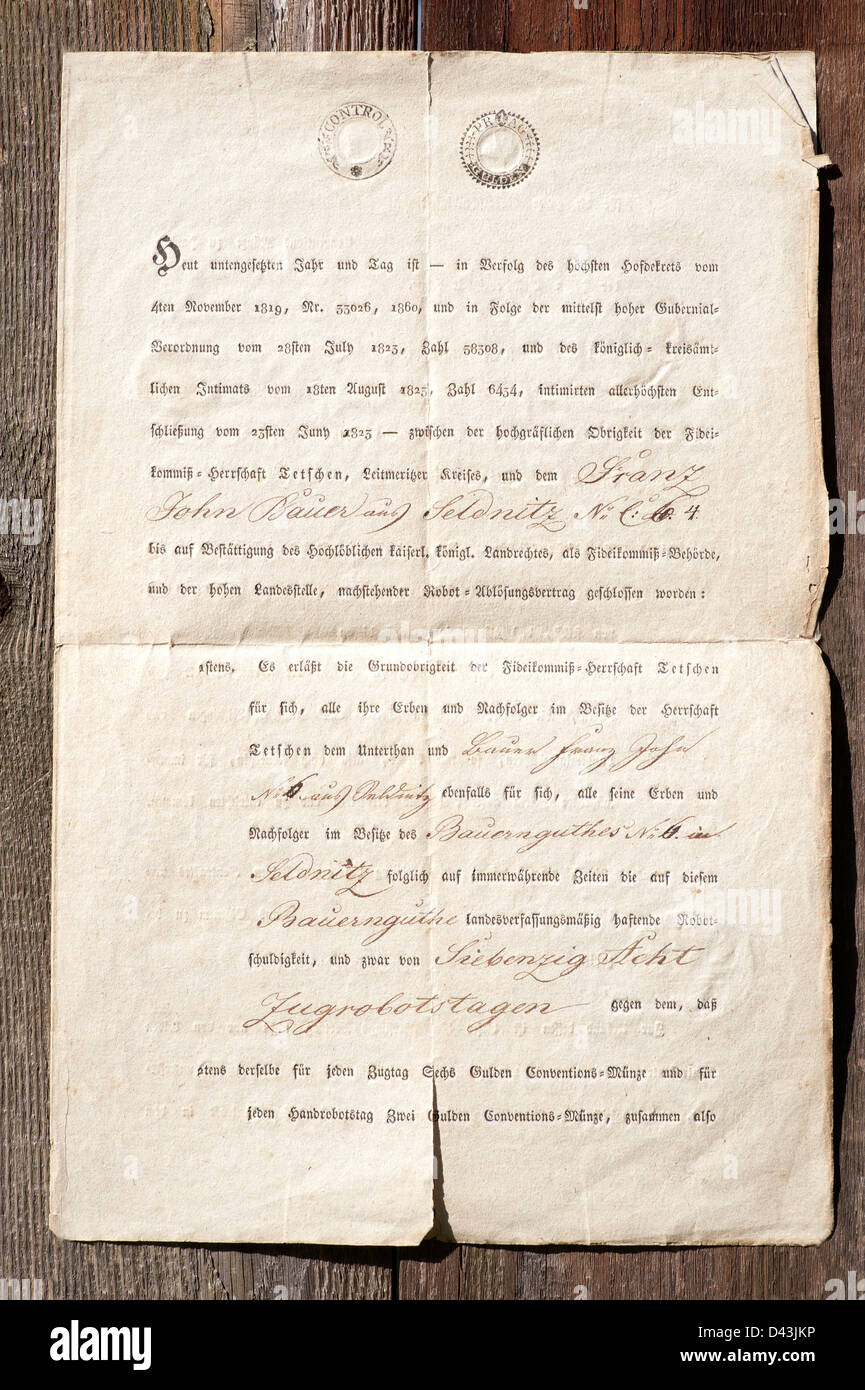 CONTROL
PRAG
GULDEN
Heut untengesetzten Jahr und Tag ist — in Verfolg des höchsten Hofdekrets vom
4ten November 1819, Nr. 33026, 1860, und in Folge der mittelst hoher Gubernial-
Verordnung vom 28sten July 1823, Zahl 38308, und des königlich-kreisämt-
lichen Intimats vom 18ten August 1823, Zahl 6434, intimirten allerhöchsten Ent-
schließung vom 23sten Juny 1823 — zwischen der hochgräflichen Obrigkeit der Fidei-
kommiß-Herrschaft Tetschen, Leitmeritzer Kreises, und dem Franz
John Bauer aus Seldnitz No C: 6. 4.
bis auf Bestättigung des Hochlöblichen kaiserl. königl. Landrechtes, als Fideikommiß-Behörde,
und der hohen Landesstelle, nachstehender Robot-Ablösungsvertrag geschlossen worden:
1stens. Es erläßt die Grundobrigkeit der Fideikommiß-Herrschaft Tetschen
für sich, alle ihre Erben und Nachfolger im Besitze der Herrschaft
Tetschen dem Unterthan und Bauer Franz John
No 6 aus Seldnitz ebenfalls für sich, alle seine Erben und
Nachfolger im Besitze des Bauernguthes No 6. in
Seldnitz folglich auf immerwährende Zeiten die auf diesem
Bauernguthe landesverfassungsmäßig haftende Robot-
schuldigkeit, und zwar von Siebenzig Acht
Zugrobotstagen gegen dem, daß
2tens derselbe für jeden Zugtag Sechs Gulden Conventions-Münze und für
jeden Handrobotstag Zwei Gulden Conventions-Münze, zusammen also
alamy
alamy
Image ID: D43JKP
www.alamy.com